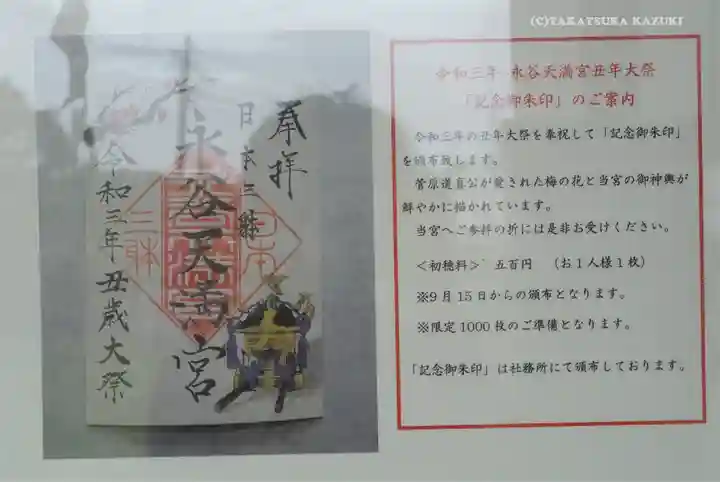 (C)TAKATSUKA KAZUKI
奉拝
日本三躰
永谷天満宮
令和三年丑歳大祭
日本
三躰
令和三年 永谷天満宮丑年大祭
「記念御朱印」のご案内
令和三年の丑年大祭を奉祝して「記念御朱印」
を頒布致します。
菅原道真公が愛された梅の花と当宮の御神輿が
鮮やかに描かれています。
当宮へご参拝の折には是非お受けください。
＜初穂料＞ 五百円 （お１人様１枚）
※9月15日からの頒布となります。
※限定1000枚のご準備となります。
「記念御朱印」は社務所にて頒布しております。